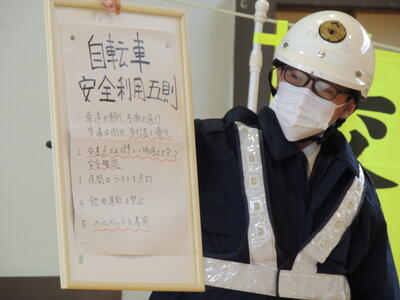 自転車
安全利用五則
1 車道が原則、左側を通行
歩道は例外、歩行者を優先
2 交差点では信号と一時停止を守って
安全確認
3 夜間はライトを点灯
4 飲酒運転は禁止
5 ヘルメットを着用